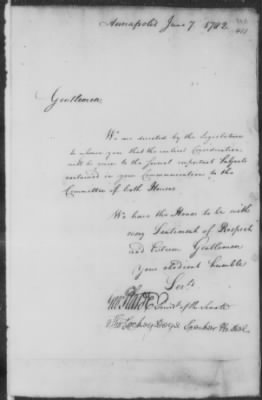 Annapolis June 7 1782
Gentlemen,
We are directed by the Legislature
to inform you that the earliest Consideration
will be given to the several important Subjects
contained in your Communication to the
Committee of both Houses
We have the Honor to be with
every Sentiment of Respect
and Esteem Gentlemen
Your obedient humble
Servts
Presidt of the Senate
Speaker Ho Del